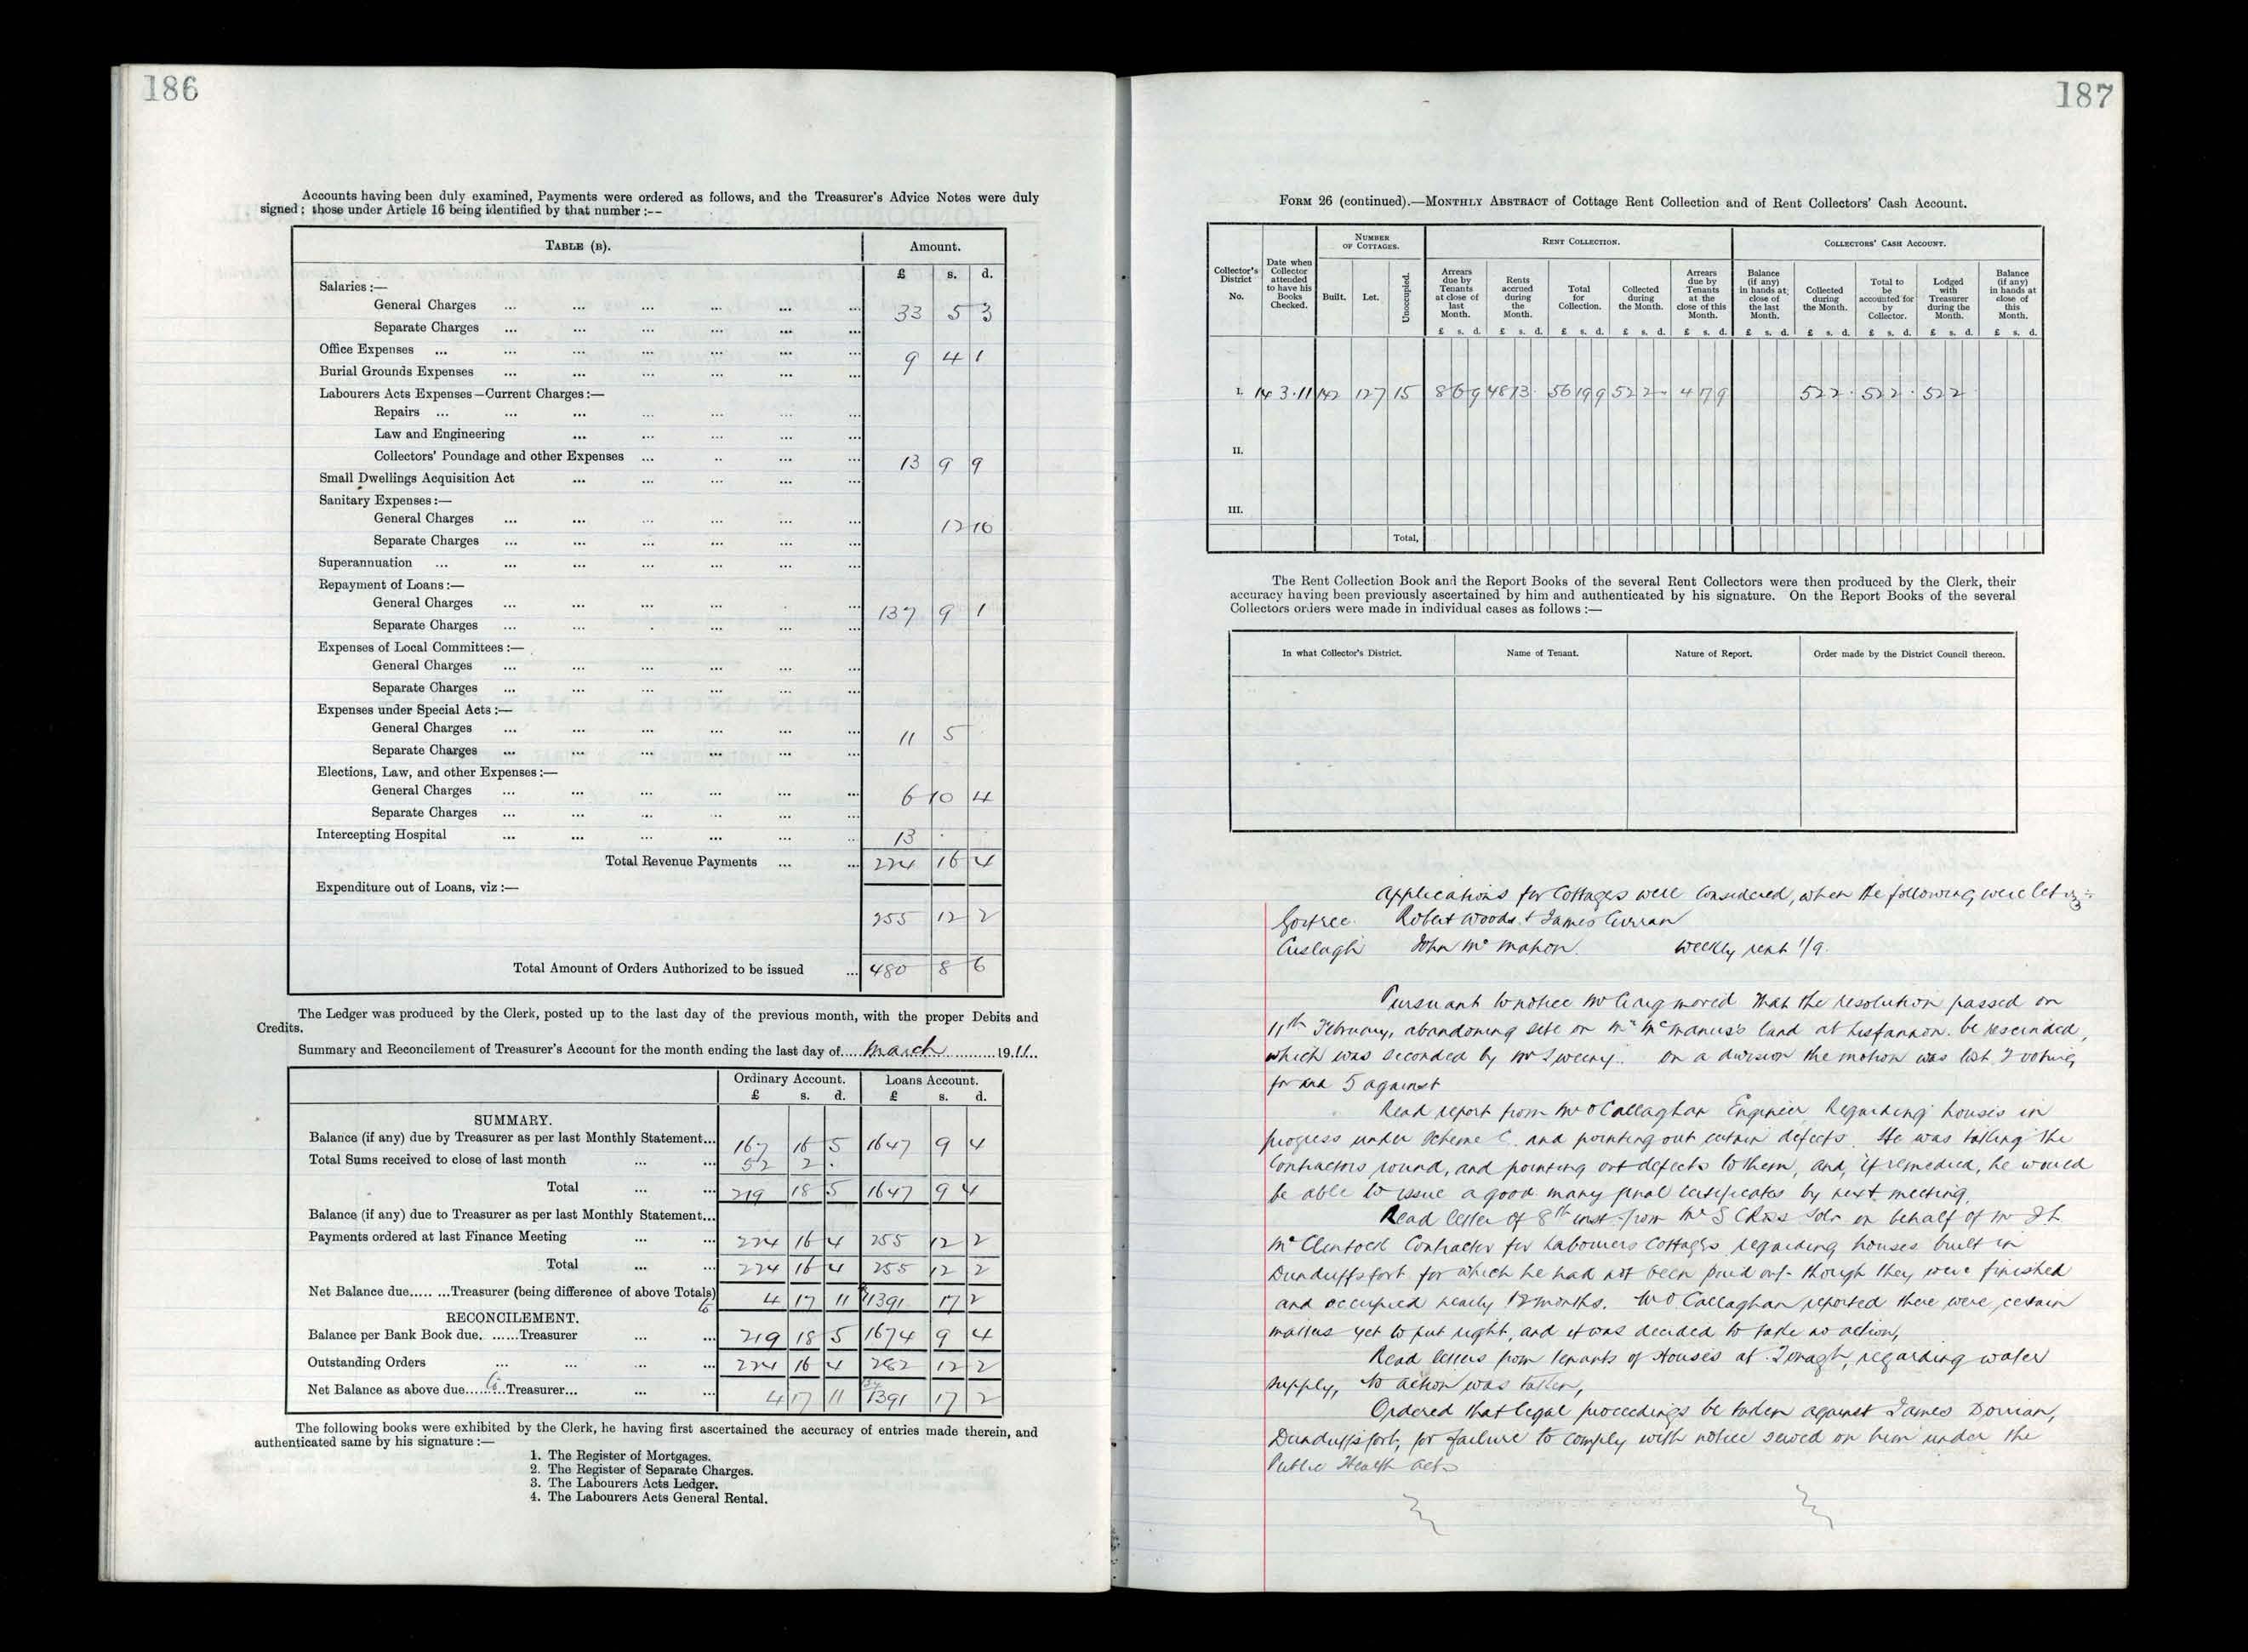 186
Accounts having been duly examined, Payments were ordered as follows, and the Treasurer's Advice Notes were duly
signed; those under Article 16 being identified by that number :--
TABLE (B). Amount.
£ s. d.
Salaries :—
General Charges ... 33 5 3
Separate Charges ...
Office Expenses ... 9 4 1
Burial Grounds Expenses ...
Labourers Acts Expenses—Current Charges :—
Repairs ...
Law and Engineering ...
Collectors' Poundage and other Expenses ... 13 9 9
Small Dwellings Acquisition Act ...
Sanitary Expenses :—
General Charges ... 12 10
Separate Charges ...
Superannuation ...
Repayment of Loans :—
General Charges ... 137 9 1
Separate Charges ...
Expenses of Local Committees :—
General Charges ...
Separate Charges ...
Expenses under Special Acts :—
General Charges ... 11 5
Separate Charges ...
Elections, Law, and other Expenses :—
General Charges ... 6 10 4
Separate Charges ...
Intercepting Hospital ... 13 . .
Total Revenue Payments ... 224 16 4
Expenditure out of Loans, viz :—
255 12 2
Total Amount of Orders Authorized to be issued ... 480 8 6
The Ledger was produced by the Clerk, posted up to the last day of the previous month, with the proper Debits and
Credits.
Summary and Reconcilement of Treasurer's Account for the month ending the last day of.... March ..........1911..
Ordinary Account. Loans Account.
£ s. d. £ s. d.
SUMMARY.
Balance (if any) due by Treasurer as per last Monthly Statement... 167 16 5 1647 9 4
Total Sums received to close of last month ... 52 2 .
Total ... 219 18 5 1647 9 4
Balance (if any) due to Treasurer as per last Monthly Statement...
Payments ordered at last Finance Meeting ... 224 16 4 255 12 2
Total ... 224 16 4 255 12 2
Net Balance due..... to ...Treasurer (being difference of above Totals) 4 17 11 1391 17 2
RECONCILEMENT.
Balance per Bank Book due. ......Treasurer ... 219 18 5 1674 9 4
Outstanding Orders ... 224 16 4 282 12 2
Net Balance as above due......to..Treasurer... 4 17 11 by 1391 17 2
The following books were exhibited by the Clerk, he having first ascertained the accuracy of entries made therein, and
authenticated same by his signature :—
1. The Register of Mortgages.
2. The Register of Separate Charges.
3. The Labourers Acts Ledger.
4. The Labourers Acts General Rental.
187
FORM 26 (continued).—MONTHLY ABSTRACT of Cottage Rent Collection and of Rent Collectors' Cash Account.
Collector's District No.
Date when Collector attended to have his Books Checked.
NUMBER OF COTTAGES.
Built. Let. Unoccupied.
RENT COLLECTION.
Arrears due by Tenants at close of last Month. £ s. d.
Rents accrued during the Month. £ s. d.
Total for Collection. £ s. d.
Collected during the Month. £ s. d.
Arrears due by Tenants at the close of this Month. £ s. d.
COLLECTORS' CASH ACCOUNT.
Balance (if any) in hands at close of the last Month. £ s. d.
Collected during the Month. £ s. d.
Total to be accounted for by Collector. £ s. d.
Lodged with Treasurer during the Month. £ s. d.
Balance (if any) in hands at close of this Month. £ s. d.
I. 14 3.11 142 127 15 8 6 9 48 13 . 56 19 9 52 2 . 4 17 9 52 2 . 52 2 . 52 2
II.
III.
Total,
The Rent Collection Book and the Report Books of the several Rent Collectors were then produced by the Clerk, their
accuracy having been previously ascertained by him and authenticated by his signature. On the Report Books of the several
Collectors orders were made in individual cases as follows :—
In what Collector's District. Name of Tenant. Nature of Report. Order made by the District Council thereon.
Applications for Cottages were considered, when the following were let viz:-
Gortree. Robert Woods & James Curran
Cuslagh John McMahon. Weekly rent 1/9.
Pursuant to notice Mr moved that the resolution passed on
11th February, abandoning site on Mrs McManus's land at Lisfannon be rescinded,
which was seconded by Mr Sweeny. On a division the motion was lost 2 voting
for and 5 against
Read report from Mr O'Callaghan Engineer Regarding houses in
progress under scheme C. and pointing out certain defects. He was taking the
Contractors round, and pointing out defects to them, and, if remedied, he would
be able to issue a good many final certificates by next meeting.
Read letter of 8th inst from Mr S C Ross Solr on behalf of Mr
McClintock Contractor for Labourers Cottages regarding houses built in
Dunduffsfort for which he had not been paid out though they were finished
and occupied nearly 12 months. Mr O'Callaghan reported there were certain
matters yet to put right, and it was decided to take no action,
Read letters from tenants of Houses at Tonagh, regarding water
supply, No action was taken,
Ordered that legal proceedings be taken against James Dorrian,
Dunduffsfort, for failure to comply with notice served on him under the
Public Health Acts